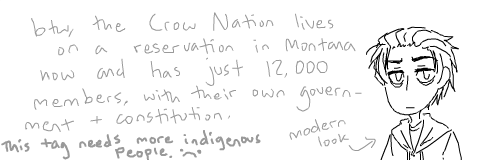 btw, the Crow Nation lives
on a reservation in Montana
now and has just 12,000
members, with their own govern-
ment + constitution.
This tag needs more indigenous
People. :^(
modern
look